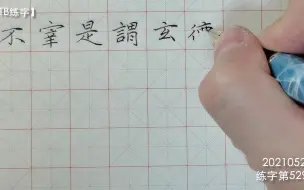 B练字】
不宰是謂玄德
2021052
练字第529